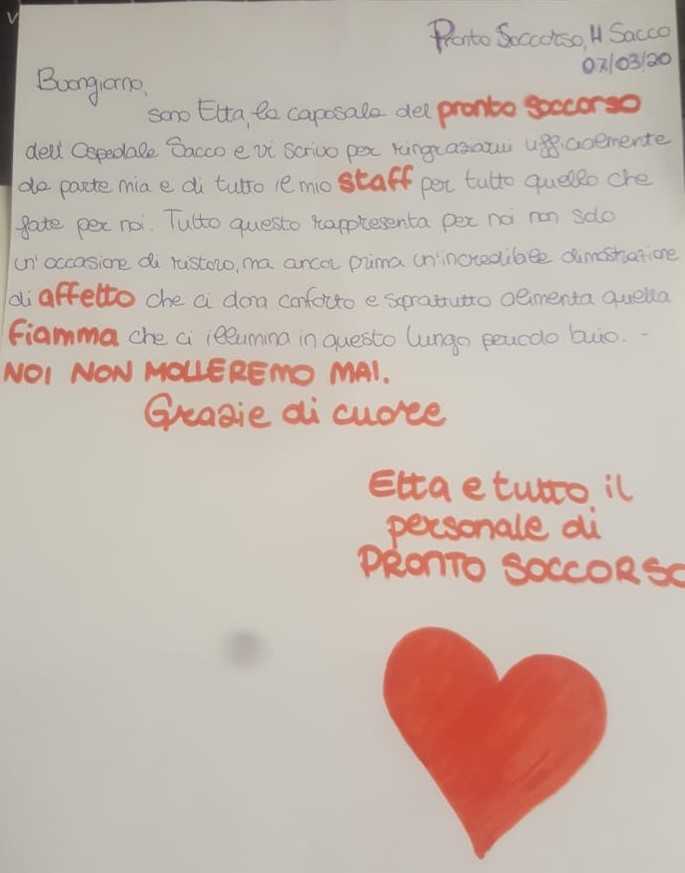 V
Pronto Soccorso, H Sacco
07/03/20
Buongiorno,
sono Etta, la caposala del pronto soccorso
dell'Ospedale Sacco e vi scrivo per ringraziarvi ufficialmente
da parte mia e di tutto il mio staff per tutto quello che
fate per noi. Tutto questo rappresenta per noi non solo
un'occasione di ristoro, ma ancor prima un'incredibile dimostrazione
di affetto che ci dona conforto e soprattutto alimenta quella
fiamma che ci illumina in questo lungo periodo buio. -
NOI NON MOLLEREMO MAI.
Grazie di cuore
Etta e tutto il
personale di
PRONTO SOCCORSO